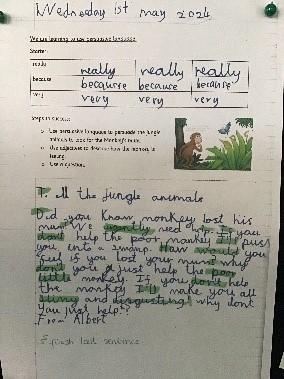 Wednesday 1st may 2024
We are learning to use persuasive language.
Starter:
really really really really
because becquse because because
very very very very
Steps to success:
Use persuasive language to persuade the jungle
animals to look for the Monkey's mum.
Use adjectives to describe how the monkey is
feeling.
Use a question.
all the jungle animals
Did you know monkey lost his
mum? We need help. If you
don't help the poor monkey I'll push
you into a swamp. How would you
feel if you lost your mum? why
don't you just help the poor
little monkey. If you don't help
the monkey I'll make you all
slimy and disgusting! why dont
you just help!?
From Albert
finish last sentence